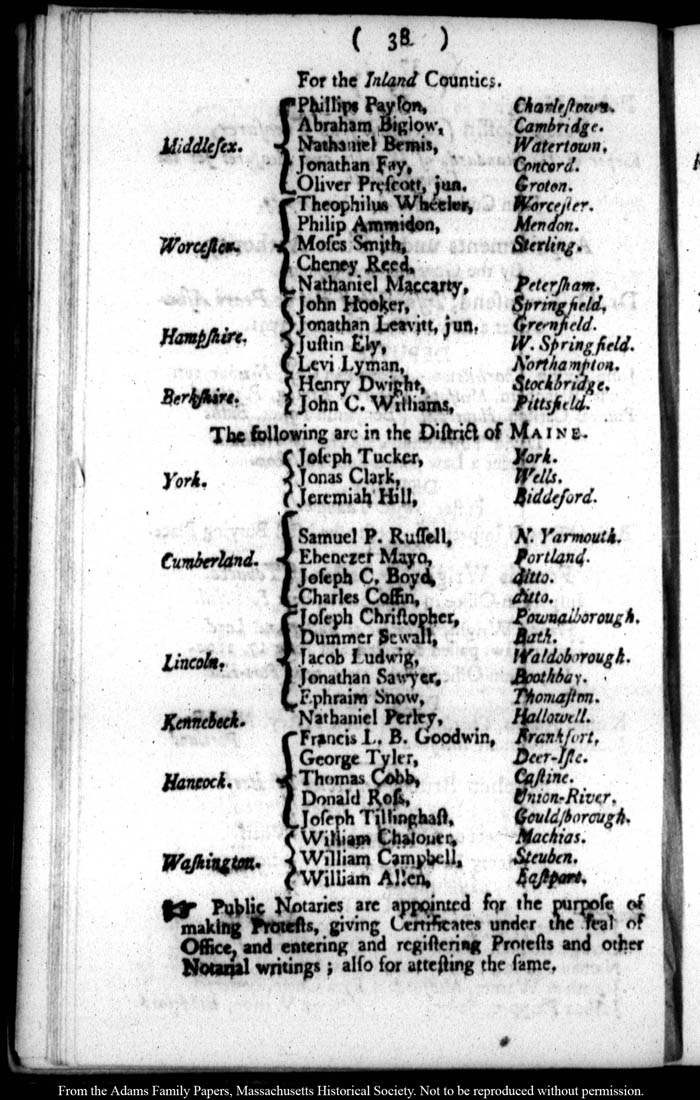 ( 38 )
For the Inland Counties.
Middleſex.
Phillips Payſon, Charleſtown.
Abraham Biglow, Cambridge.
Nathaniel Bemis, Watertown.
Jonathan Fay, Concord.
Oliver Preſcott, jun. Groton.
Worceſter.
Theophilus Wheeler, Worceſter.
Philip Ammidon, Mendon.
Moſes Smith, Sterling.
Cheney Reed,
Nathaniel Maccarty, Peterſham.
Hampſhire.
John Hooker, Springfield.
Jonathan Leavitt, jun. Greenfield.
Juſtin Ely, W. Springfield.
Levi Lyman, Northampton.
Berkſhire.
Henry Dwight, Stockbridge.
John C. Williams, Pittsfield.
The following are in the Diſtrict of MAINE.
York.
Joſeph Tucker, York.
Jonas Clark, Wells.
Jeremiah Hill, Biddeford.
Cumberland.
Samuel P. Ruſſell, N. Yarmouth.
Ebenezer Mayo, Portland.
Joſeph C. Boyd, ditto.
Charles Coffin, ditto.
Lincoln.
Joſeph Chriſtopher, Pownalborough.
Dummer Sewall, Bath.
Jacob Ludwig, Waldoborough.
Jonathan Sawyer, Boothbay.
Ephraim Snow, Thomaſton.
Kennebeck.
Nathaniel Perley, Hallowell.
Hancock.
Francis L. B. Goodwin, Frankfort.
George Tyler, Deer-Iſle.
Thomas Cobb, Caſtine.
Donald Roſs, Union-River.
Joſeph Tillinghaſt, Gouldſborough.
Waſhington.
William Chaloner, Machias.
William Campbell, Steuben.
William Allen, Eaſtport.
☞ Public Notaries are appointed for the purpoſe of
making Proteſts, giving Certificates under the ſeal of
Office, and entering and regiſtering Proteſts and other
Notarial writings ; alſo for atteſting the ſame.
From the Adams Family Papers, Massachusetts Historical Society. Not to be reproduced without permission.